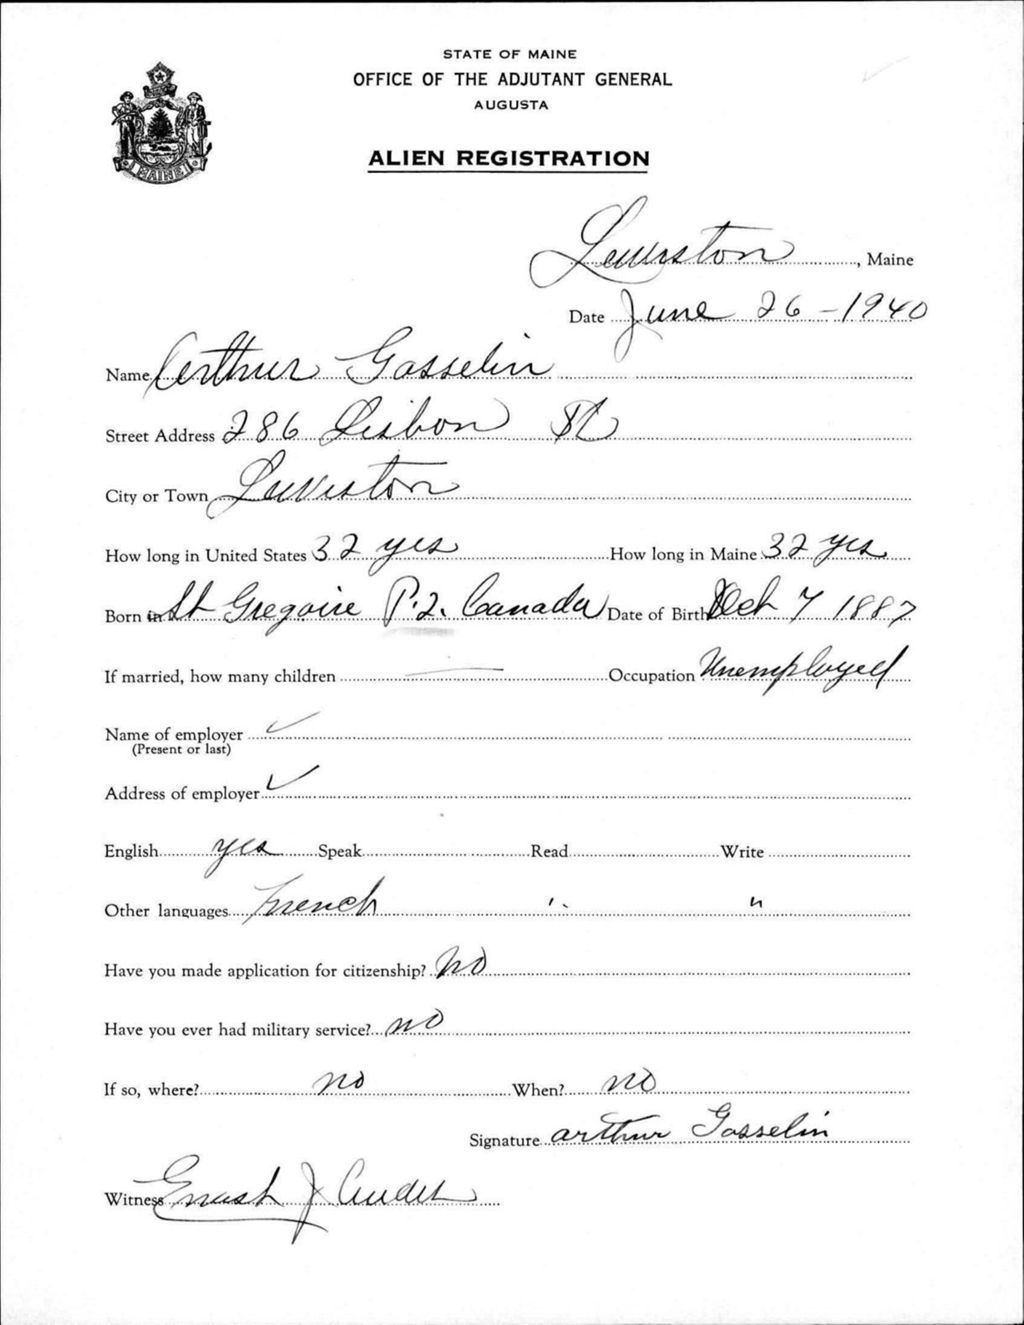 STATE OF MAINE
OFFICE OF THE ADJUTANT GENERAL
AUGUSTA
MAINE
ALIEN REGISTRATION
Lewiston, Maine
Date June 26 - 1940
Name Arthur Gosselin
Street Address 286 Lisbon St
City or Town Lewiston
How long in United States 32 yrs How long in Maine 32 yrs
Born in St Gregoire P.2. Canada Date of Birth 7 1887
If married, how many children — Occupation Unemployed
Name of employer ✓
(Present or last)
Address of employer ✓
English yes Speak Read Write
Other languages French " "
Have you made application for citizenship? No
Have you ever had military service? no
If so, where? no When? no
Signature Arthur Gosselin
Witness J